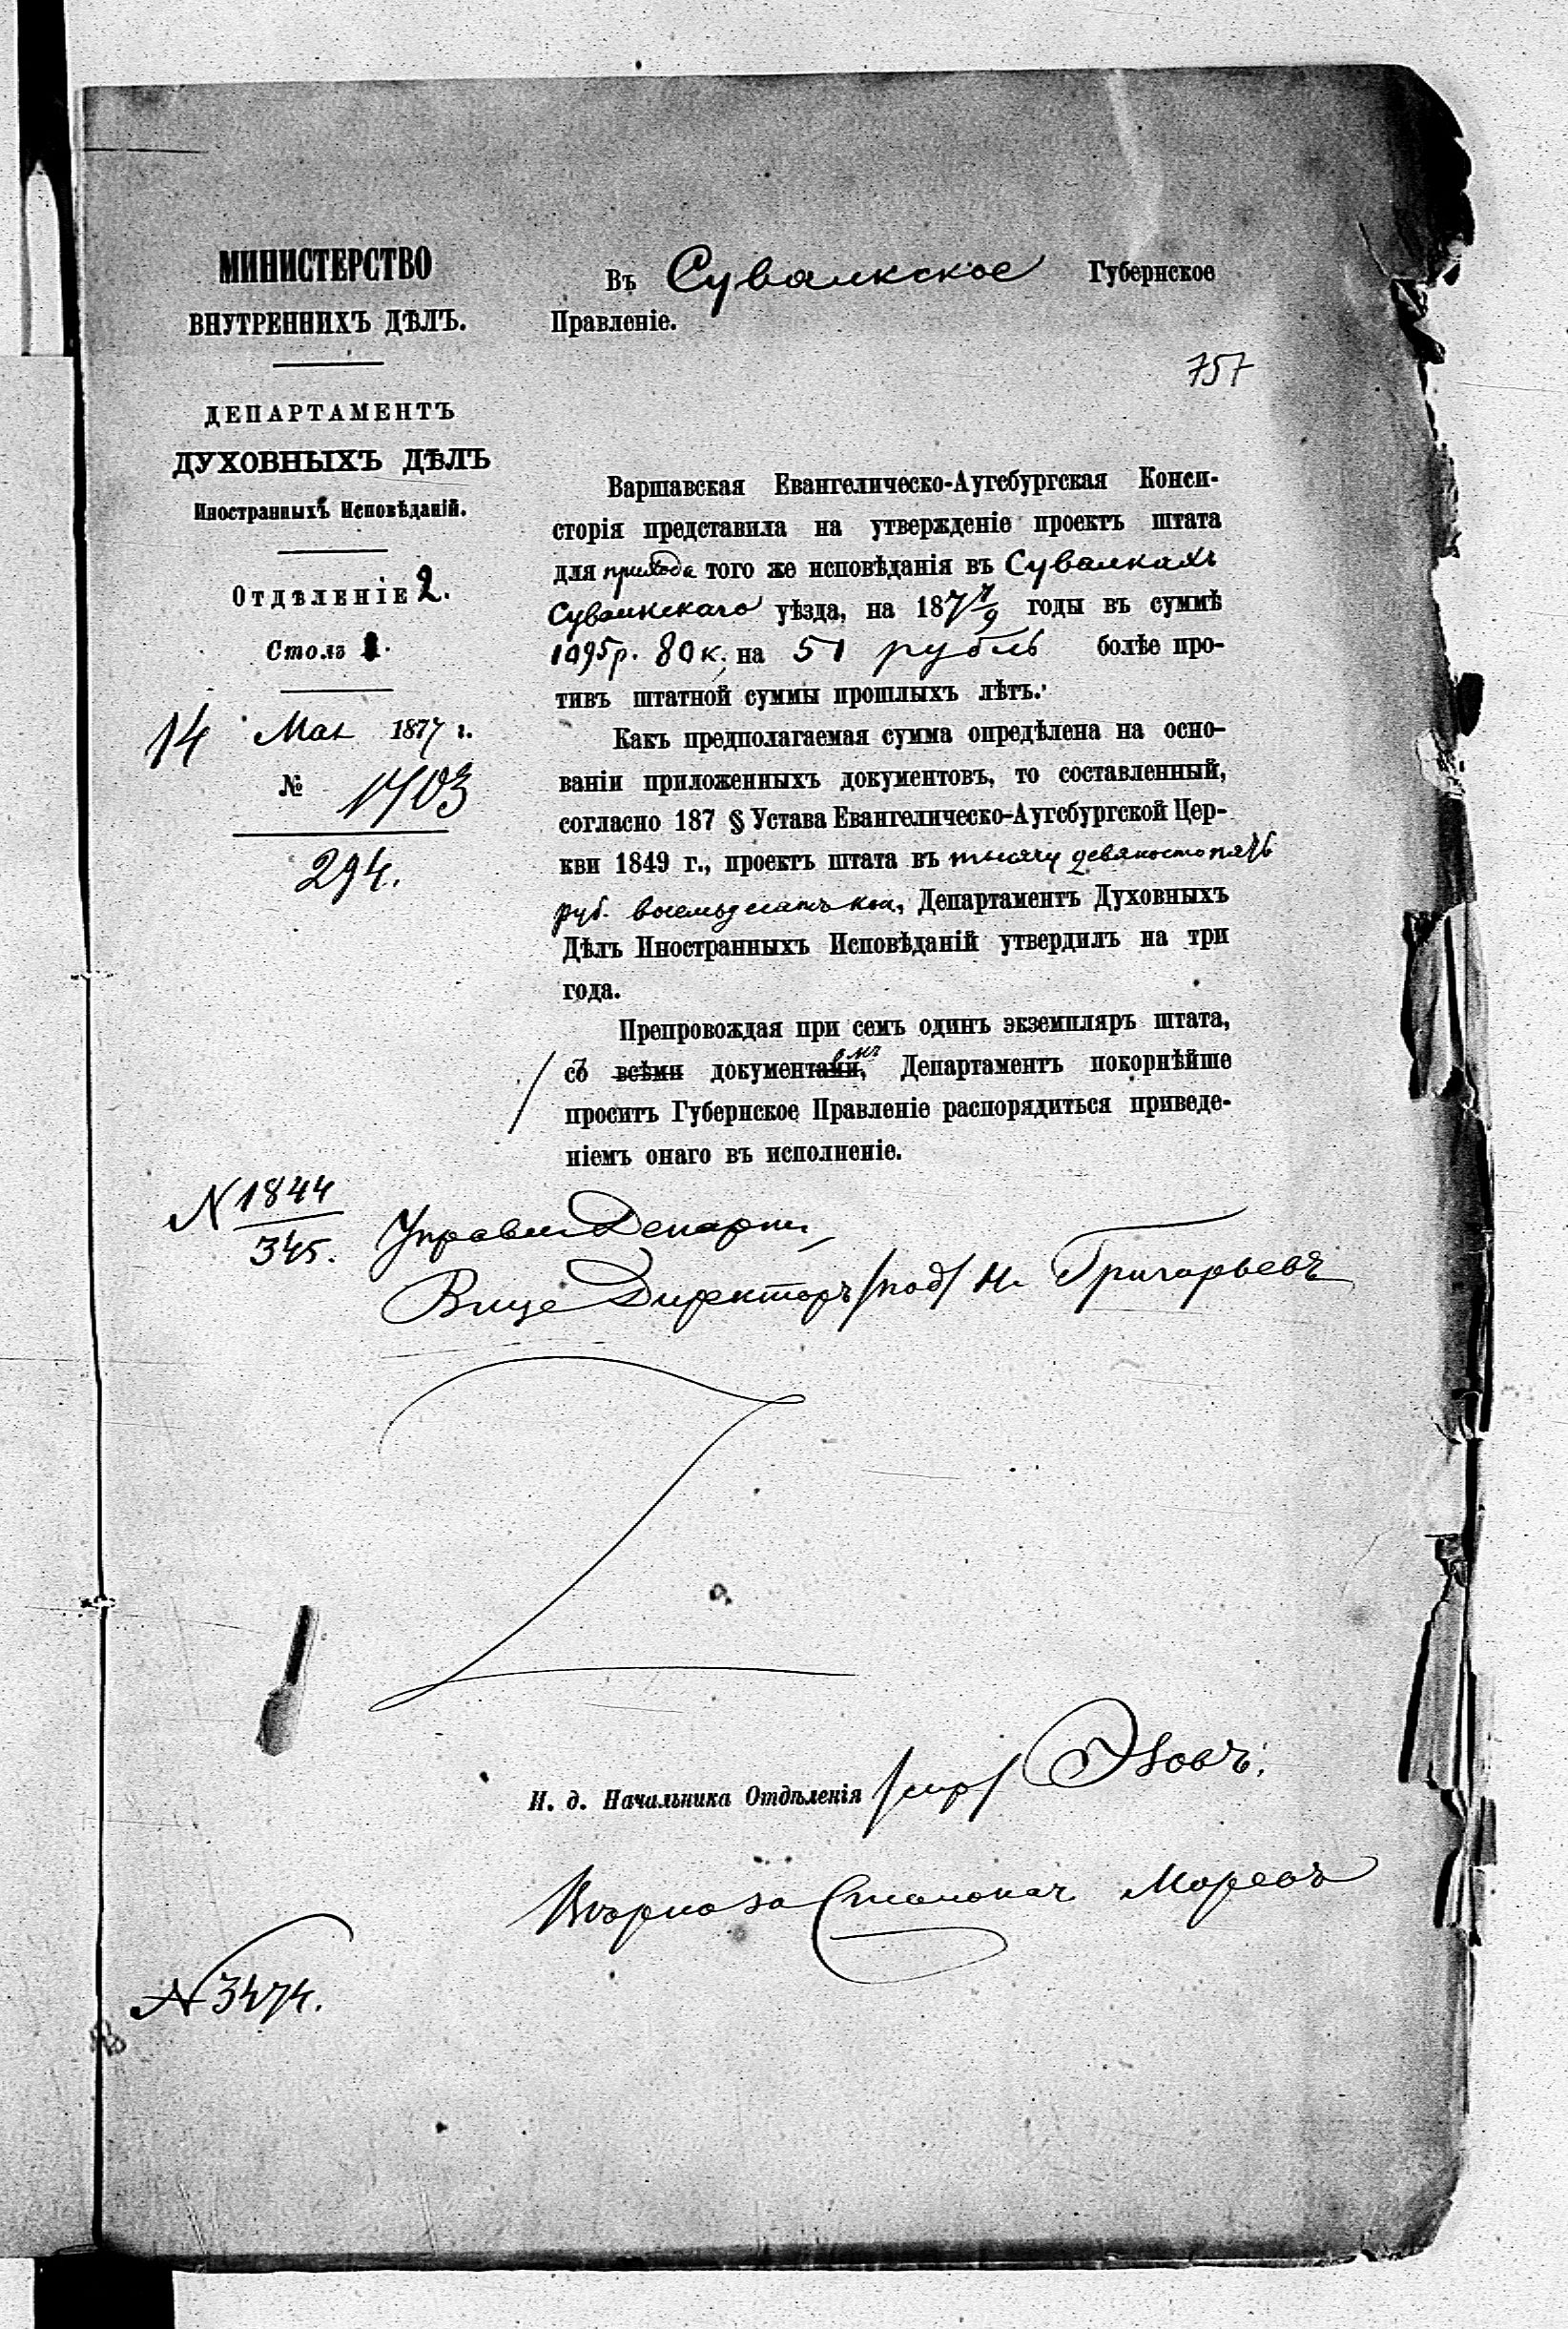 МИНИСТЕРСТВО
ВНУТРЕННИХЪ ДѢЛЪ.
ДЕПАРТАМЕНТЪ
ДУХОВНЫХЪ ДѢЛЪ
Иностранныхъ Исповѣданій.
Отдѣленіе 2.
Столъ 1.
14 Мая 1877 г.
№ 1703
294.
Въ Сувалкское Губернское
Правленіе.
757
Варшавская Евангелическо-Аугсбургская Конси-
сторія представила на утвержденіе проектъ штата
для прихода того же исповѣданія въ Сувалкахъ
Сувалкскаго уѣзда, на 187 7/9 годы въ суммѣ
1095 р. 80 к. на 51 рубль болѣе про-
тивъ штатной суммы прошлыхъ лѣтъ.
Какъ предполагаемая сумма опредѣлена на осно-
ваніи приложенныхъ документовъ, то составленный,
согласно 187 § Устава Евангелическо-Аугсбургской Цер-
кви 1849 г., проектъ штата въ тысячу девяносто пять
руб. восемьдесятъ коп., Департаментъ Духовныхъ
Дѣлъ Иностранныхъ Исповѣданій утвердилъ на три
года.
Препровождая при семъ одинъ экземпляръ штата,
съ всѣми документами, омъ Департаментъ покорнѣйше
проситъ Губернское Правленіе распорядиться приведе-
ніемъ онаго въ исполненіе.
N 1844
345.
Управл Департ
Вице Директоръ /под/ Н. Григорьевъ
И. д. Начальника Отдѣленія /скр/ Эзовъ.
Вѣрно за Столонач Моревъ
N 3474.